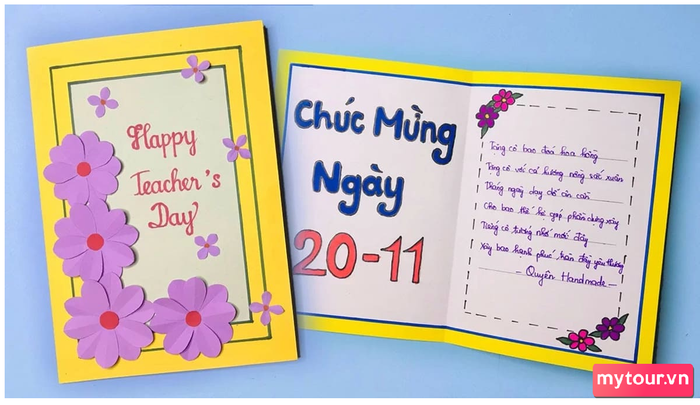 Happy
Teacher's
Day
Chúc Mừng
Ngày
20-11
Tặng cô bao đoá hoa hồng
Tặng cô với cả hương nồng sắc xuân
Tháng ngày dạy dỗ ân cần
Cho bao thế hệ góp phần dựng xây
Trường cô tường nhớ mới đây
Xây bao hạnh phúc, tràn đầy yêu thương
- Quyên Handmade -
mytour.vn